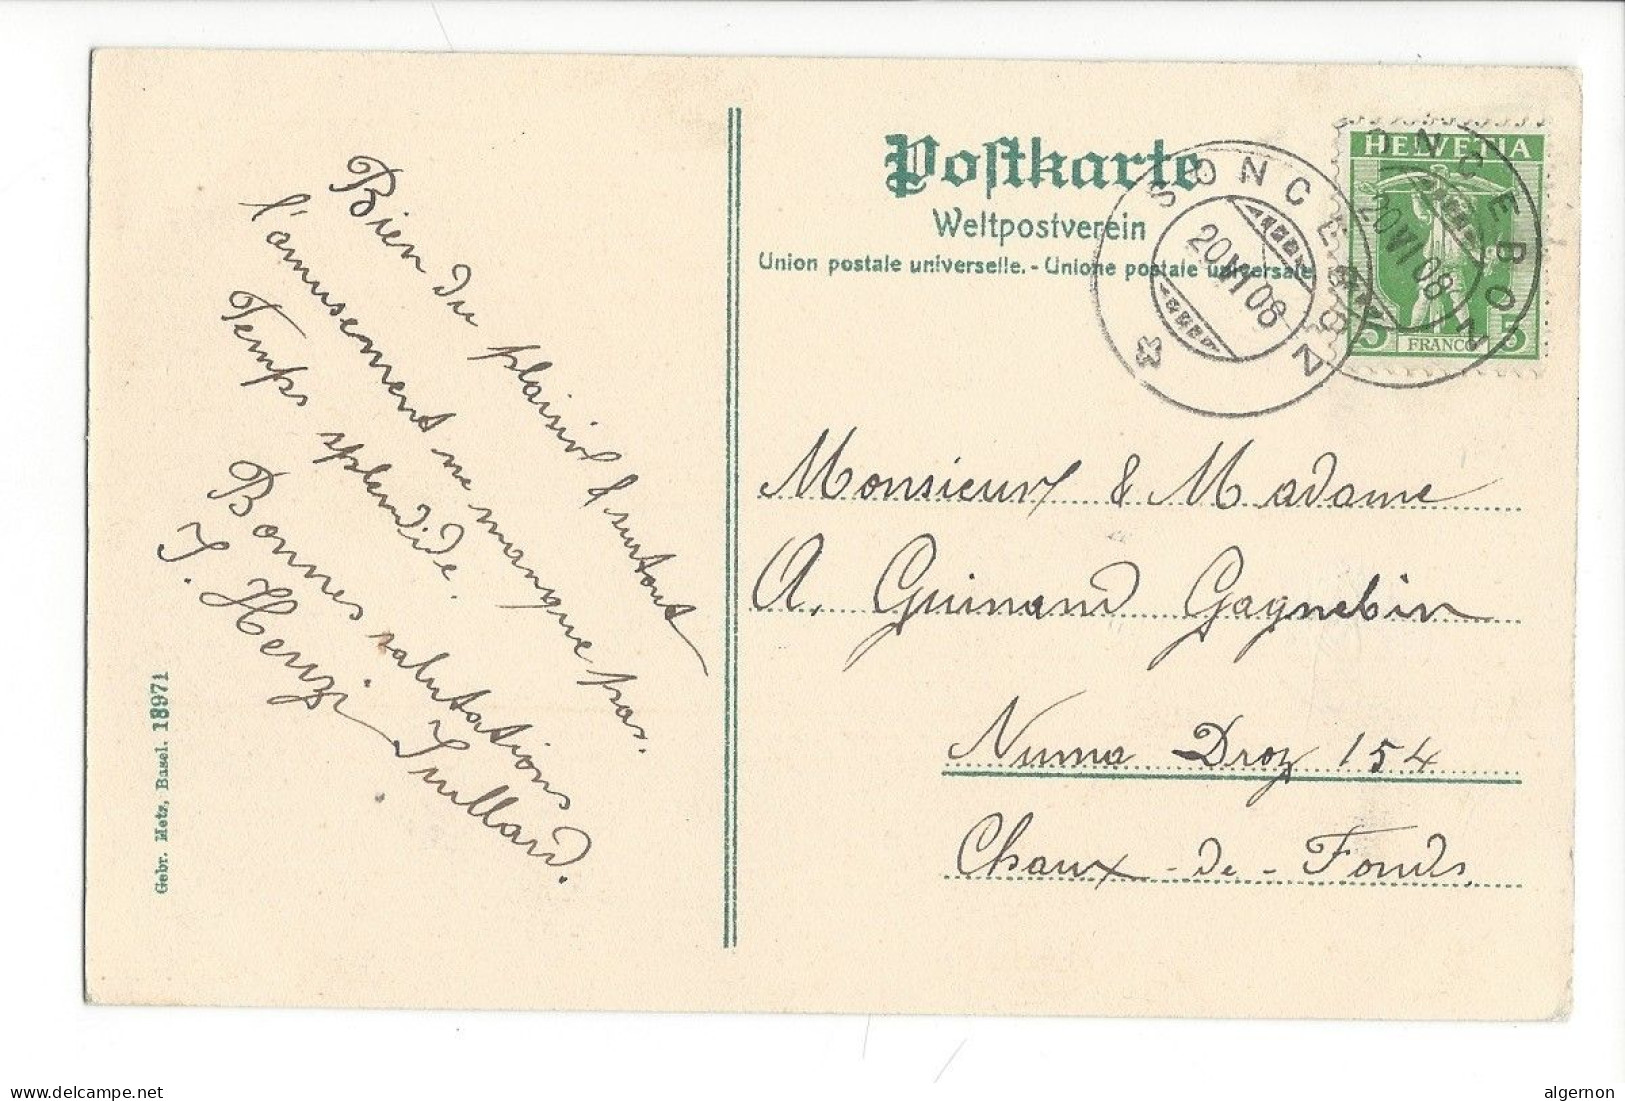 Postkarte
Weltpostverein
Union postale universelle. - Unione postale universale
HELVETIA
5 FRANCO 5
SONCEBOZ
20 VI 08
SONCEBOZ
20 VI 08
Bien du plaisir & surtout
l'amusement ne manque pas.
Temps splendide.
Bonnes salutations
J. Henzi Juillard.
Monsieur & Madame
A. Guinand Gagnebin
Numa Droz 154
Chaux-de-Fonds.
Gebr. Metz, Basel. 18971
delcampe.net
algernon